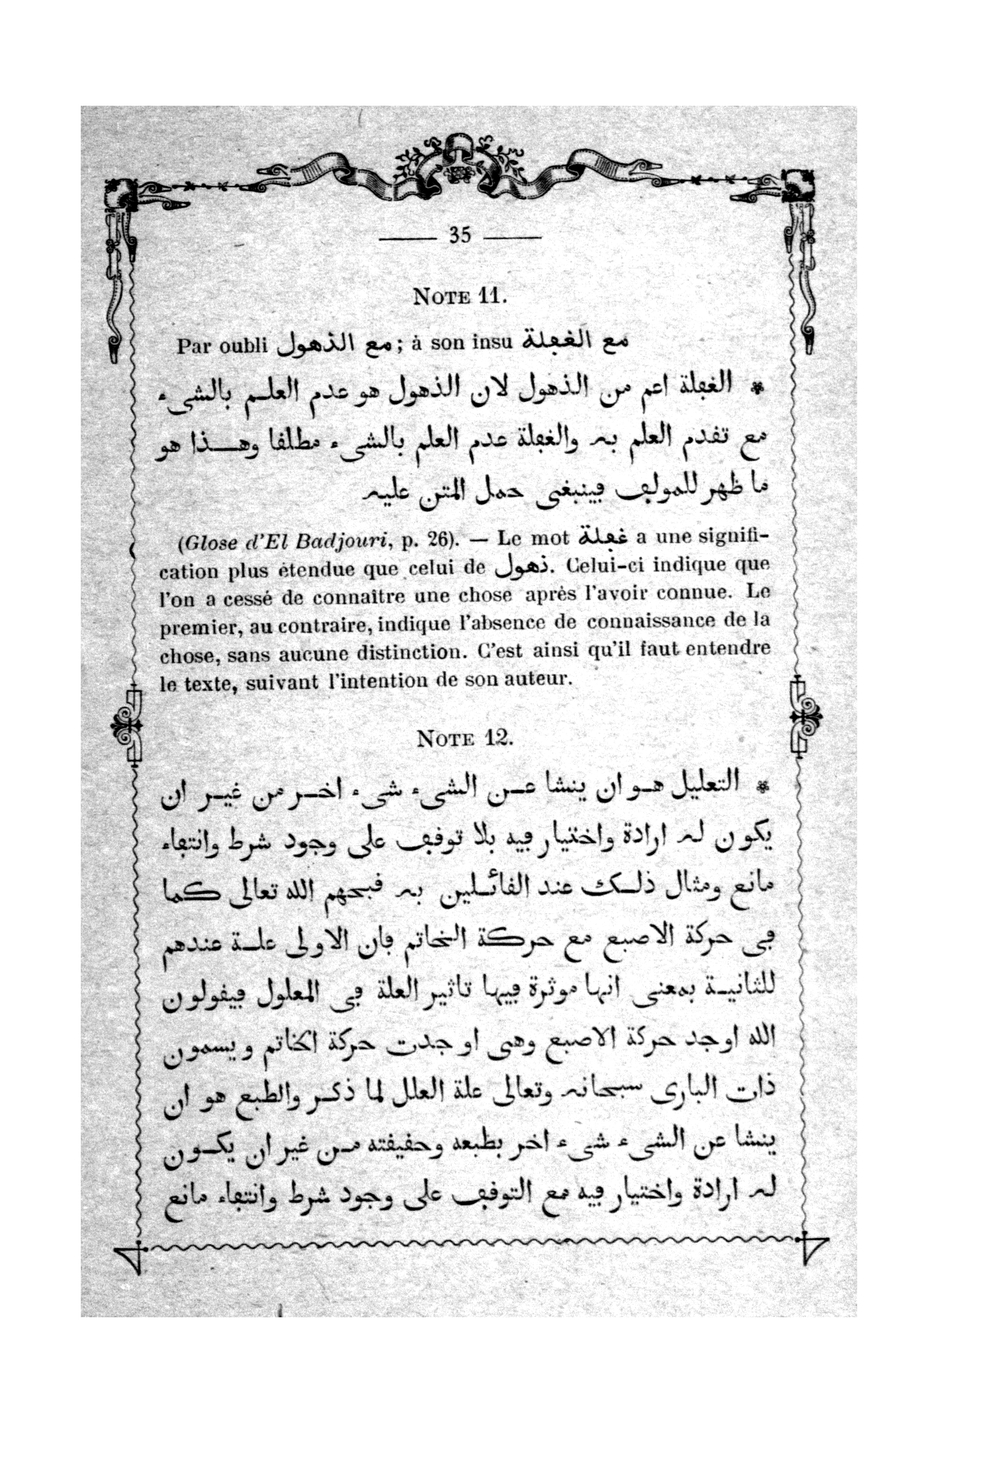 — 35 —
NOTE 11.
Par oubli مع الذهول; à son insu مع الغفلة
* الغفلة اعم من الذهول لان الذهول هو عدم العلم بالشىء
مع تقدم العلم به والغفلة عدم العلم بالشىء مطلقا وهذا هو
ما ظهر للمولف فينبغى حمل المتن عليه
(Glose d'El Badjouri, p. 26). — Le mot غفلة a une signifi-
cation plus étendue que celui de ذهول. Celui-ci indique que
l'on a cessé de connaître une chose après l'avoir connue. Le
premier, au contraire, indique l'absence de connaissance de la
chose, sans aucune distinction. C'est ainsi qu'il faut entendre
le texte, suivant l'intention de son auteur.
NOTE 12.
* التعليل هو ان ينشا عن الشىء شىء اخر من غير ان
يكون له ارادة واختيار فيه بلا توقف على وجود شرط وانتفاء
مانع ومثال ذلك عند القائلين به قبحهم الله تعالى كما
فى حركة الاصبع مع حركة الخاتم فان الاولى علة عندهم
للثانية بمعنى انها موثرة فيها تاثير العلة فى المعلول فيقولون
الله اوجد حركة الاصبع وهى اوجدت حركة الخاتم ويسمون
ذات البارى سبحانه وتعالى علة العلل لما ذكر والطبع هو ان
ينشا عن الشىء شىء اخر بطبعه وحقيقته من غير ان يكون
له ارادة واختيار فيه مع التوقف على وجود شرط وانتفاء مانع